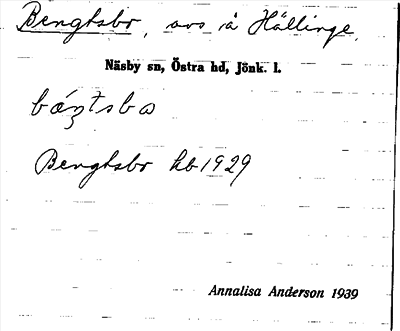 Bengtsbo, avs. å Hållinge.
Näsby sn, Östra hd, Jönk. l.
Bengtsbo hb 1929
Annalisa Anderson 1939